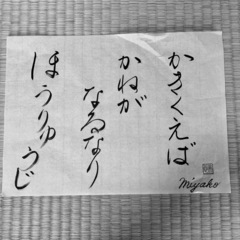 かきくえば
かねが
なるなり
ほうりゅうじ
miyako